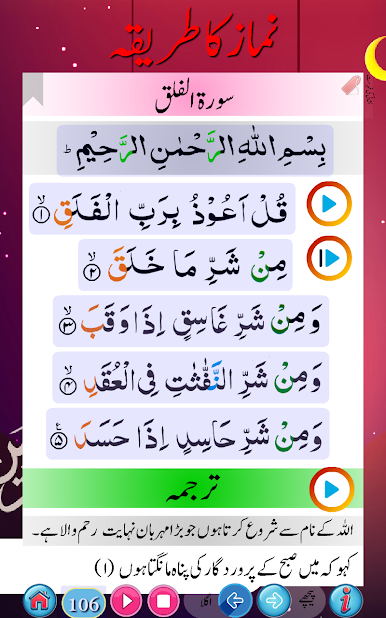 نماز کا طریقہ
سورۃ الفلق
بِسْمِ اللهِ الرَّحْمٰنِ الرَّحِيْمِ ط
قُلْ اَعُوْذُ بِرَبِّ الْفَلَقِ ۙ﴿۱﴾
مِنْ شَرِّ مَا خَلَقَ ۙ﴿۲﴾
وَ مِنْ شَرِّ غَاسِقٍ اِذَا وَقَبَ ۙ﴿۳﴾
وَ مِنْ شَرِّ النَّفّٰثٰتِ فِی الْعُقَدِ ۙ﴿۴﴾
وَ مِنْ شَرِّ حَاسِدٍ اِذَا حَسَدَ ﴿۵﴾
ترجمہ
اللہ کے نام سے شروع کرتا ہوں جو بڑا مہربان نہایت رحم والا ہے۔
کہو کہ میں صبح کے پروردگار کی پناہ مانگتا ہوں (۱)
106 اگلا پیچھے